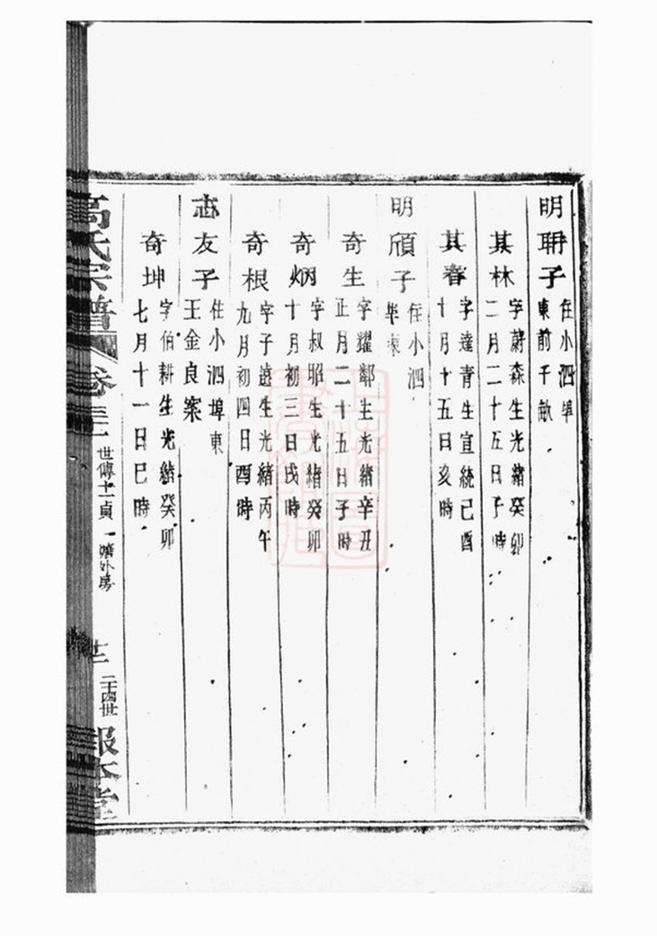 明聃子 住小泗埠
東前千畝
其林 字蔚森生光緒癸卯
二月二十五日子時
其春 字達青生宣統己酉
十月十五日亥時
明頎子 住小泗
埠東
奇生 字耀鄰生光緒辛丑
正月二十五日子時
奇炳 字叔昭生光緒癸卯
十月初三日戌時
奇根 字子遠生光緒丙午
九月初四日酉時
志友子 住小泗埠東
王金良家
奇坤 字伯耕生光緒癸卯
七月十一日巳時
高氏宗譜 卷三
世傳 十一貞一 外房
二十四世
報本堂